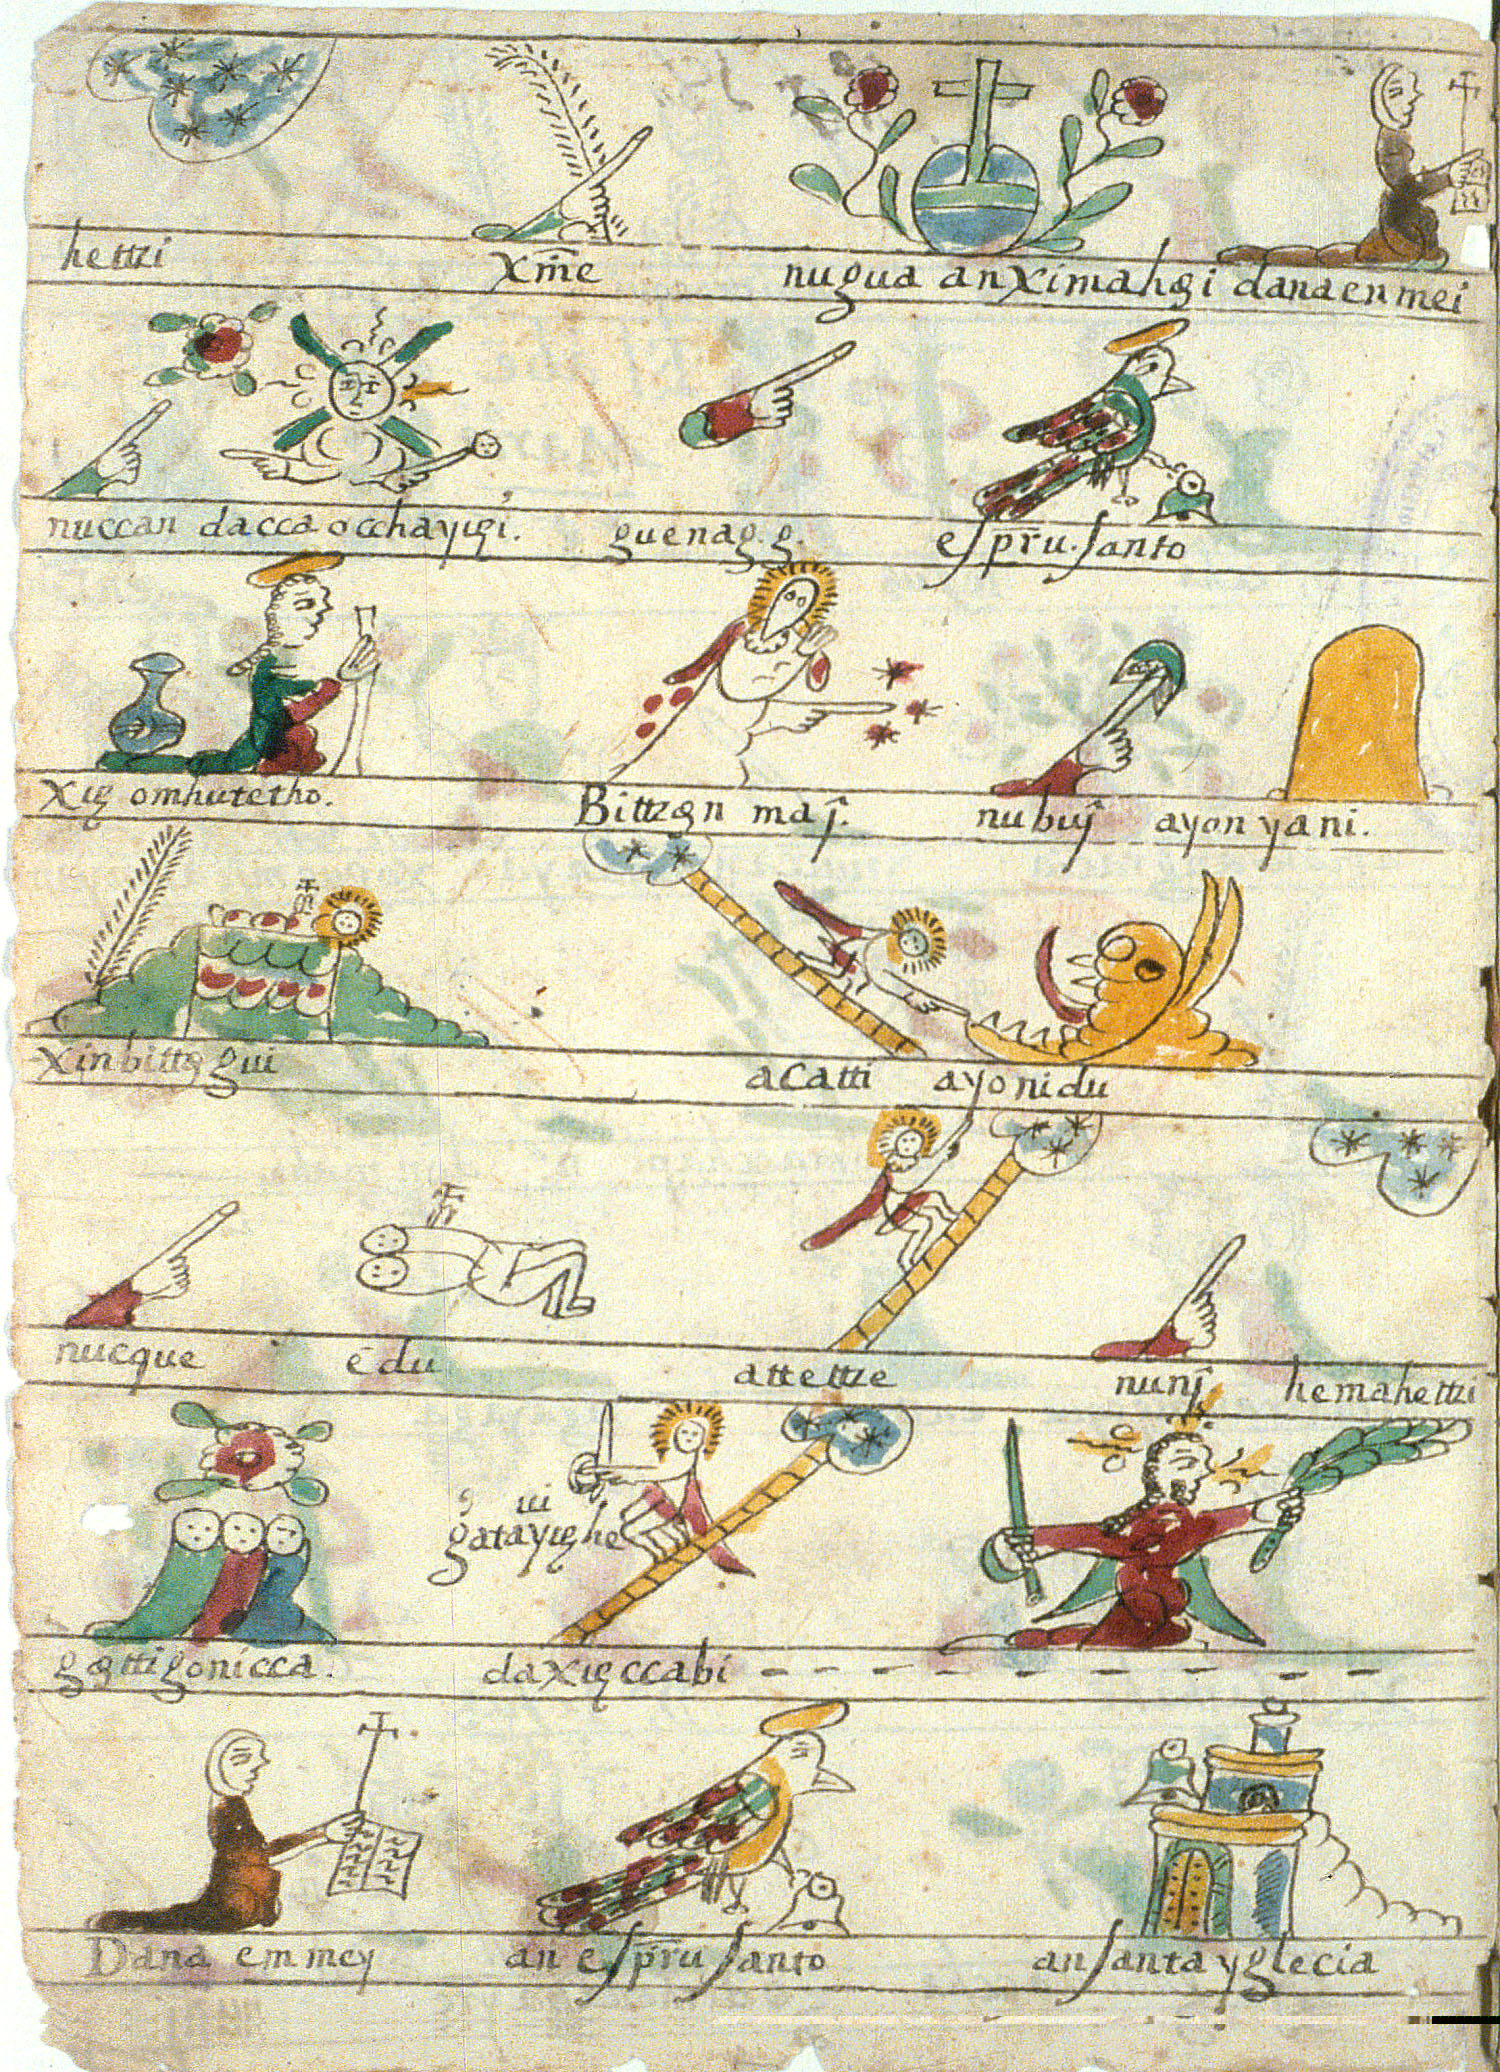 hettzi xm̃e nugua anximahęi danaenmei
nuccan dacca occhayięi. guenag. g. espr̃u. santo
xię omhutetho. Bittzęn maȷ̂. nubuȷ̂ ayonyani.
xinbittę gui acatti ayonidu
nucque ēdu attettze nunȷ̂ hemahettzi
ui
gatayięhe
gęttigonicca. daxięccabi - - - - - - - - - - - -
Dana emmey an espr̃u santo an santa yglecia